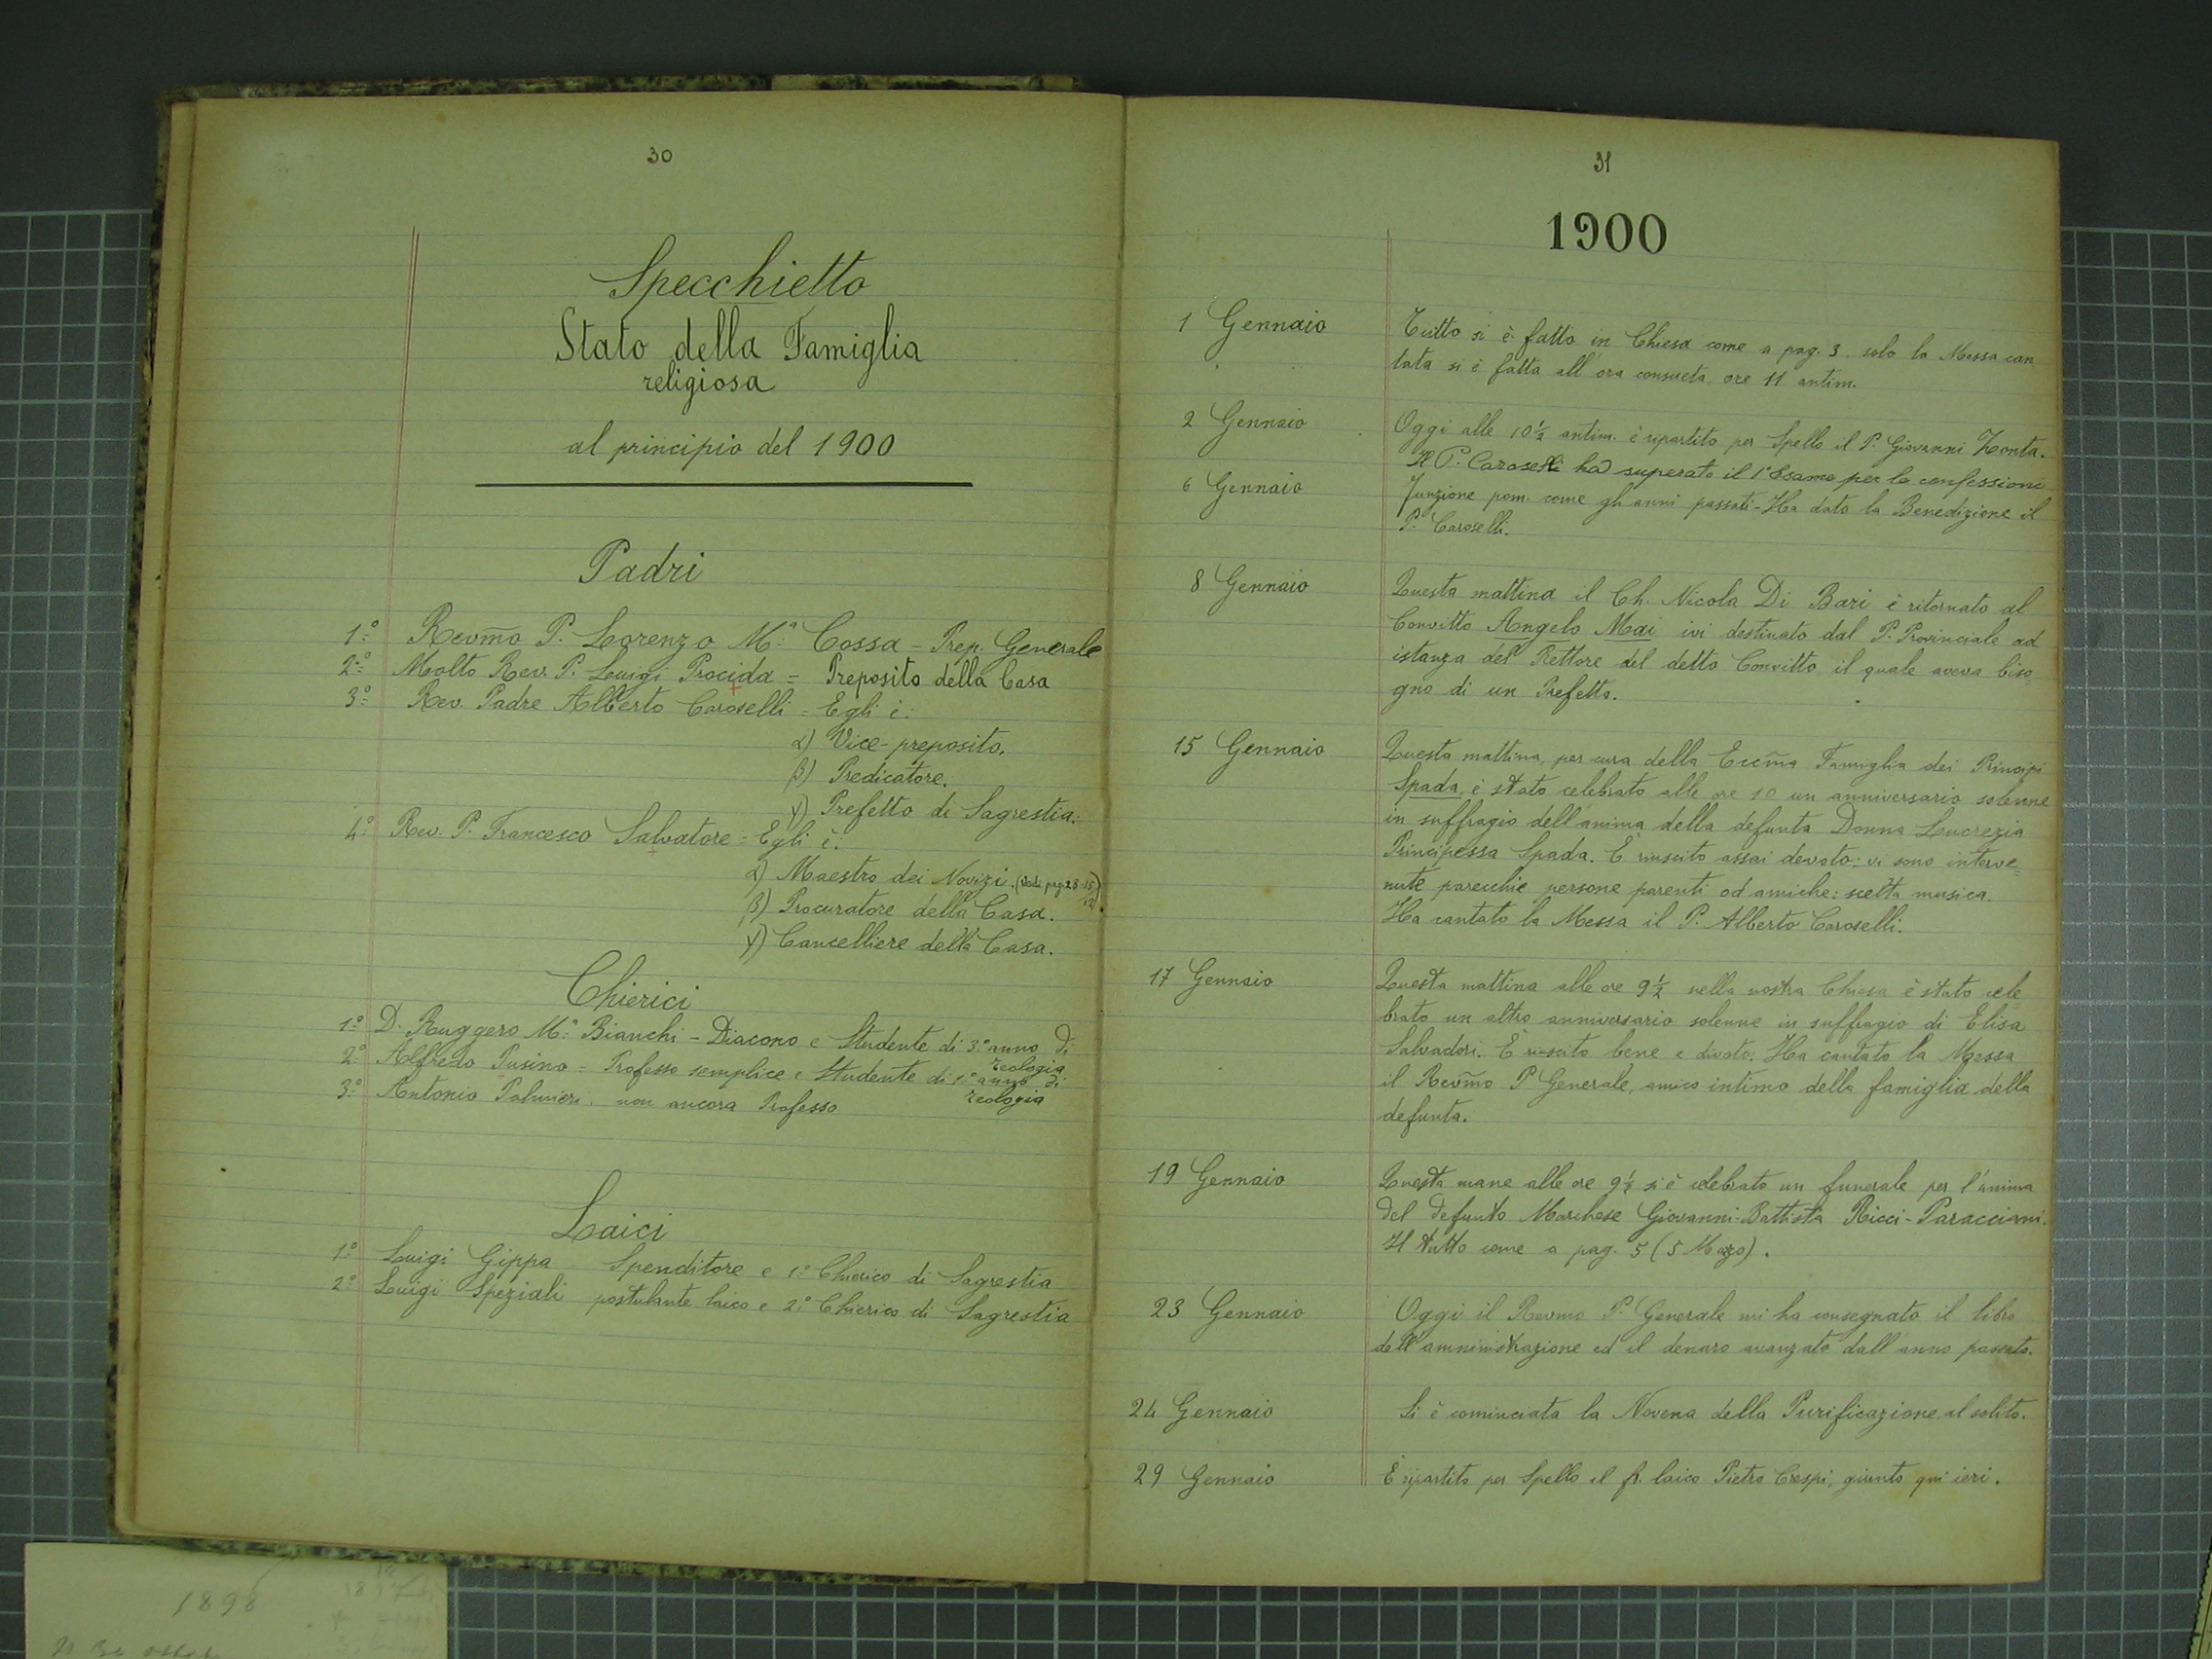 30
Specchietto
Stato della Famiglia
religiosa
al principio del 1900
Padri
1.° Revm̃o P. Lorenzo M.ª Cossa - Prep. Generale
2.° Molto Rev. P. Luigi Procida = Preposito della Casa
3.° Rev. Padre Alberto Caroselli = Egli è:
α) Vice-preposito.
β) Predicatore.
γ) Prefetto di Sagrestia.
4.° Rev. P. Francesco Salvatore = Egli è:
α) Maestro dei Novizi. (Vedi pag. 28-15/12)
β) Procuratore della Casa.
γ) Cancelliere della Casa.
Chierici
1.° D. Ruggero M.ª Bianchi - Diacono e Studente di 3.° anno di
Teologia
2.° Alfredo Pusino = Professo semplice e Studente di 1.° anno di
Teologia
3.° Antonio Palmieri, non ancora Professo
Laici
1.° Luigi Gippa Spenditore e 1.° Chierico di Sagrestia
2.° Luigi Speziali postulante laico e 2.° Chierico di Sagrestia
31
1900
1 Gennaio Tutto si è fatto in Chiesa come a pag. 3. solo la Messa can
tata si è fatta all'ora consueta, ore 11 antim.
2 Gennaio Oggi alle 10½ antim. è ripartito per Spello il P. Giovanni Zonta.
Il P. Caroselli ha superato il 1° Esame per le confessioni
6 Gennaio Funzione pom. come gli anni passati - Ha dato la Benedizione il
P. Caroselli.
8 Gennaio Questa mattina il Ch. Nicola Di Bari è ritornato al
Convitto Angelo Mai ivi destinato dal P. Provinciale ad
istanza del Rettore del detto Convitto il quale aveva biso
gno di un Prefetto.
15 Gennaio Questa mattina, per cura della Eccm̃a Famiglia dei Principi
Spada, è stato celebrato alle ore 10 un anniversario solenne
in suffragio dell'anima della defunta Donna Lucrezia
Principessa Spada. È riuscito assai devoto: vi sono interve=
nute parecchie persone parenti od amiche: scelta musica.
Ha cantato la Messa il P. Alberto Caroselli.
17 Gennaio Questa mattina alle ore 9½ nella nostra Chiesa è stato cele
brato un altro anniversario solenne in suffragio di Elisa
Salvadori. È riuscito bene e divoto. Ha cantato la Messa
il Revm̃o P. Generale, amico intimo della famiglia della
defunta.
19 Gennaio Questa mane alle ore 9½ si è celebrato un funerale per l'anima
del defunto Marchese Giovanni-Battista Ricci-Paracciani.
Il tutto come a pag. 5 (5 Marzo).
23 Gennaio Oggi il Revmo P. Generale mi ha consegnato il libro
dell'amministrazione ed il denaro avanzato dall'anno passato.
24 Gennaio Si è cominciata la Novena della Purificazione, al solito.
29 Gennaio È ripartito per Spello il fr. laico Pietro Crespi, giunto qui ieri.
1898